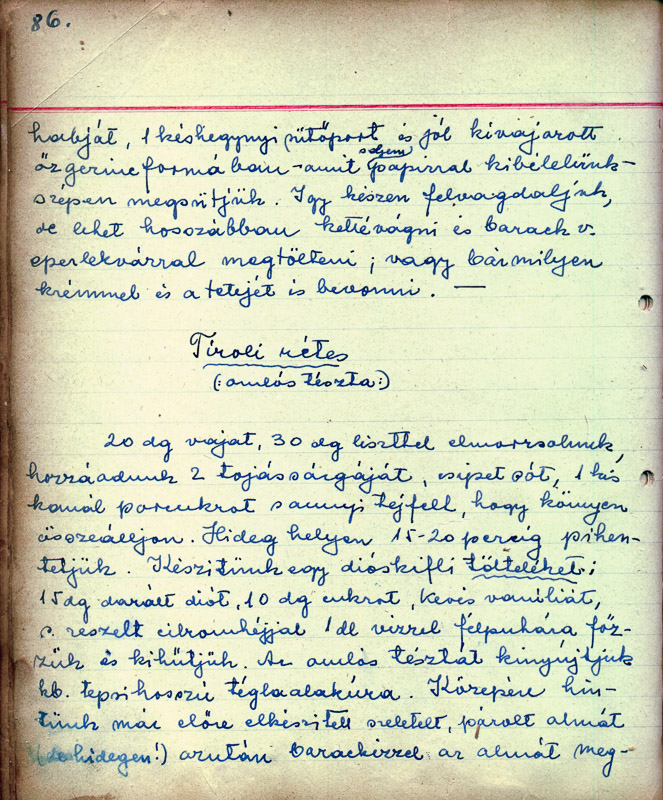 86.
habját, 1 késhegynyi sütőport és jól kivajazott
őzgerincformában – amit selyem papirral kibélelünk –
szépen megsütjük. Igy készen felvagdaljuk,
de lehet hosszábban kettévágni és barack v.
eperlekvárral megtölteni; vagy bármilyen
krémmel és a tetejét is bevonni. —
Tiroli rétes
(: omlós tészta :)
20 dg vajat, 30 dg liszttel elmorzsolunk,
hozzáadunk 2 tojássárgáját, csipet sót, 1 kis
kanál porcukrot s annyi tejfelt, hogy könnyen
összeálljon. Hideg helyen 15-20 percig pihen-
tetjük. Készitünk egy dióskifli tölteléket:
15 dg darált diót, 10 dg cukrot, kevés vaniliát,
s reszelt citromhéjjal 1 dl vizzel félpuhára főz-
zük és kihűtjük. Az omlós tésztát kinyújtjuk
kb. tepsihosszú téglaalakúra. Közepére hin-
tünk már előre elkészitett szeletelt, párolt almát
(de hidegen!) azután barackizzel az almát meg-